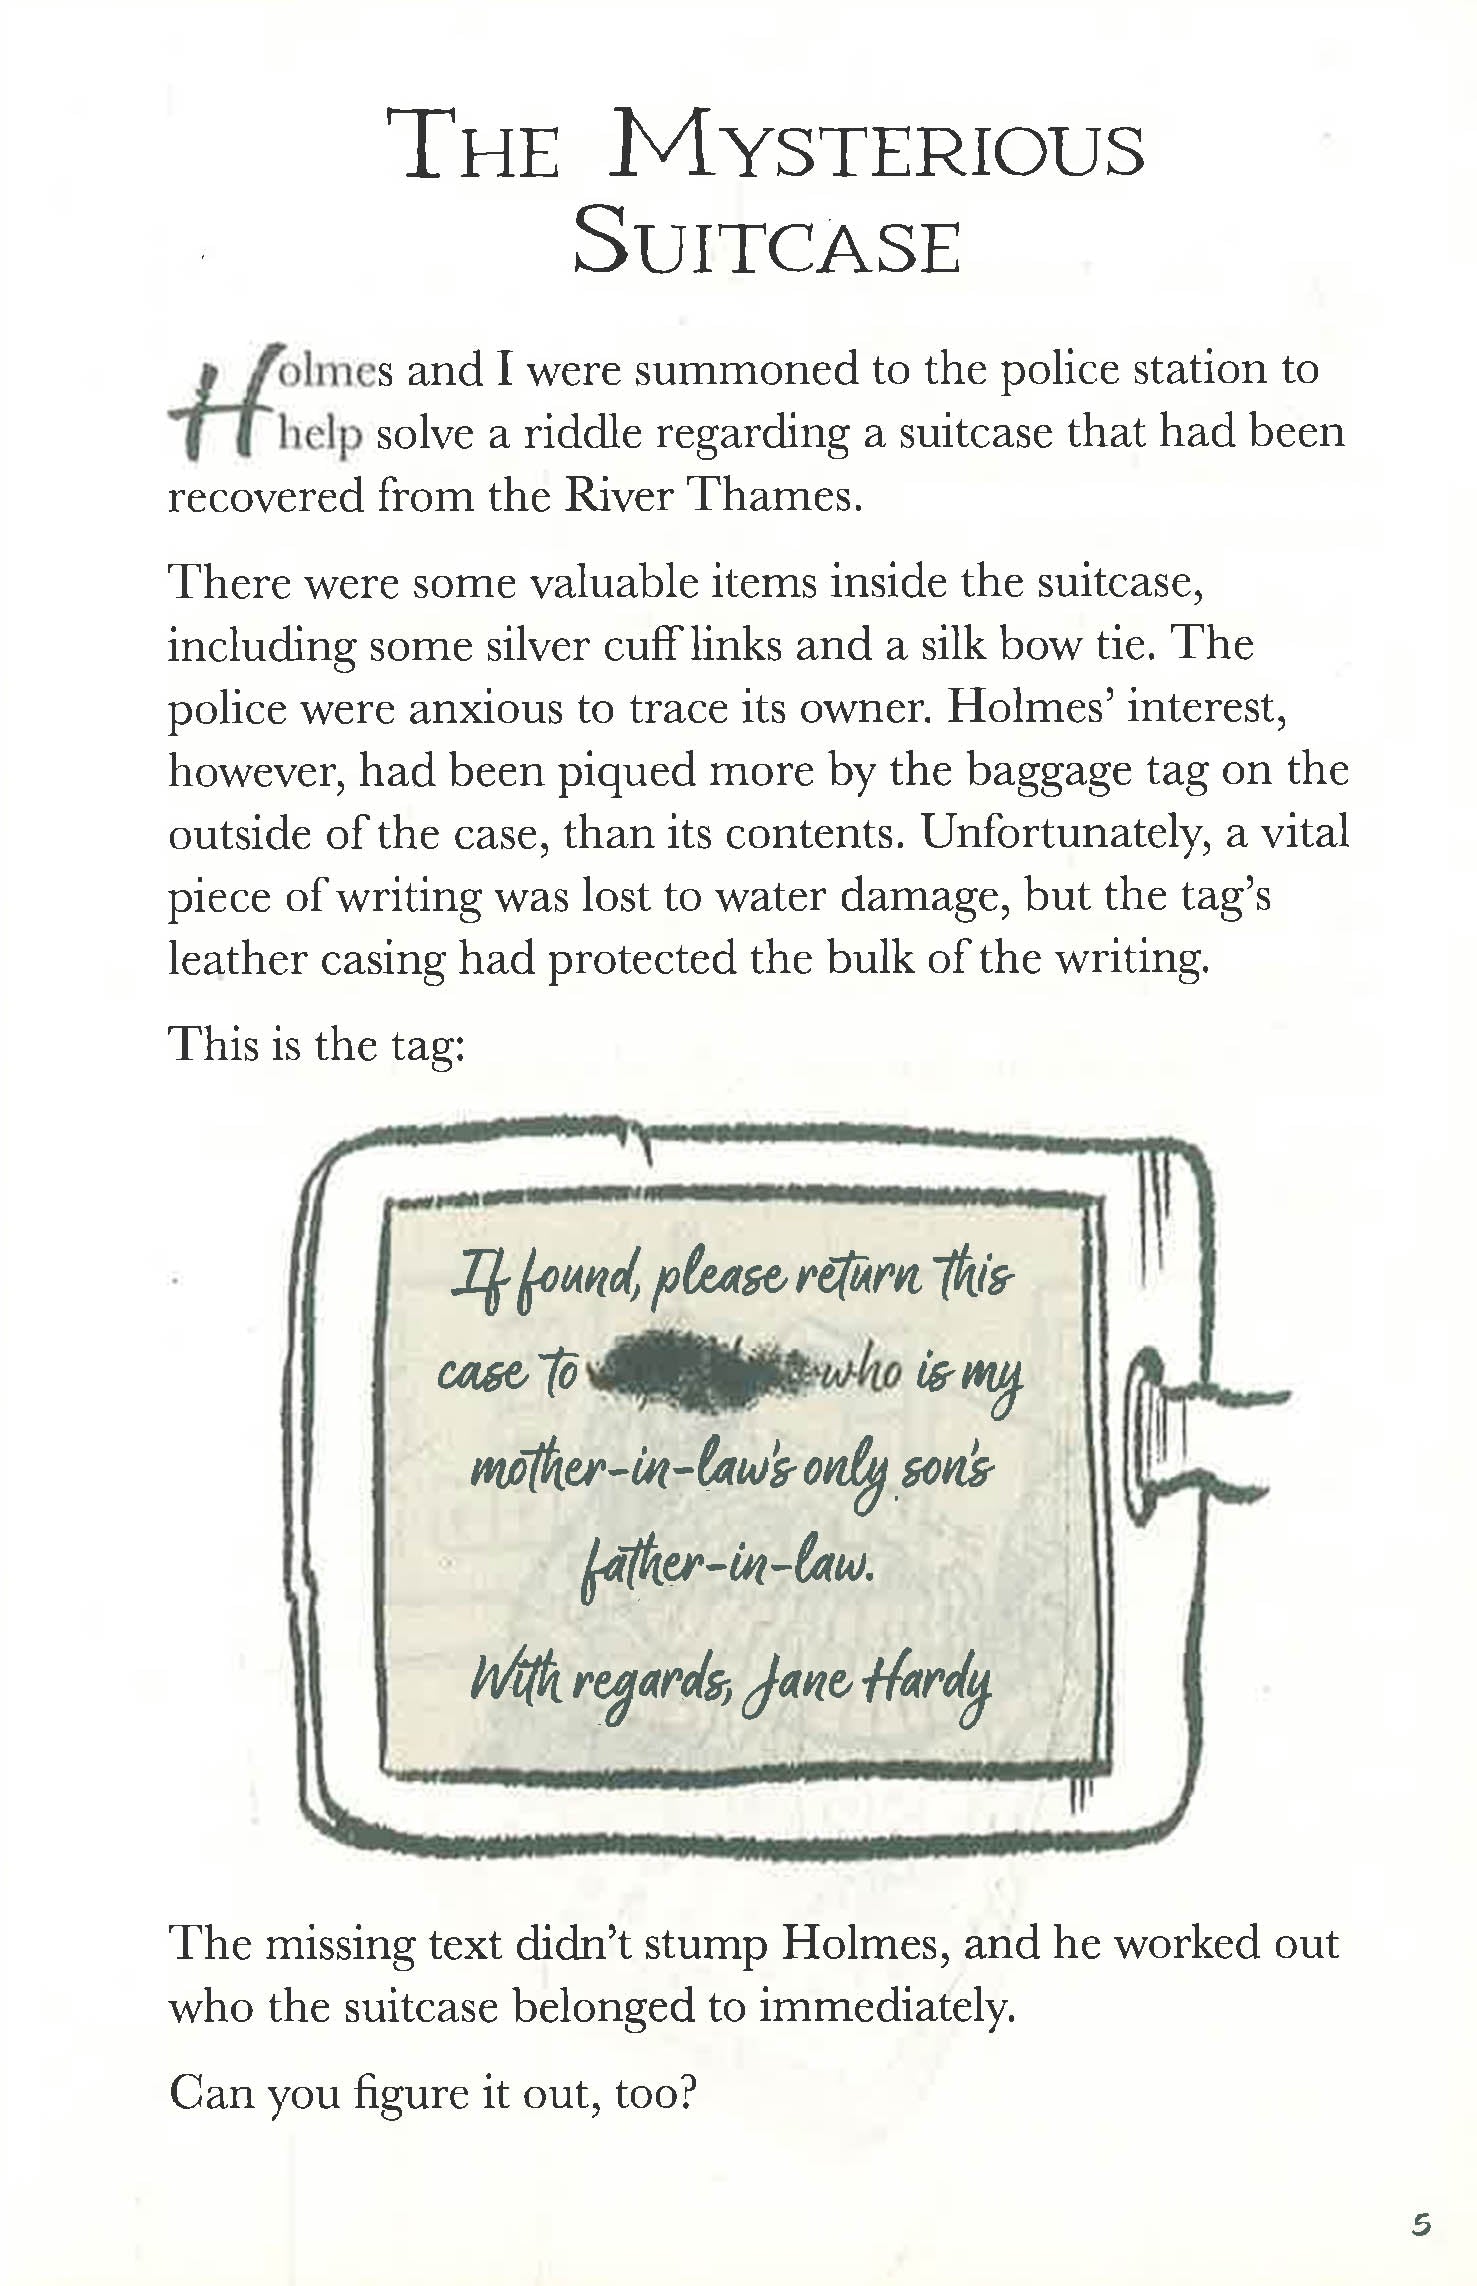 THE MYSTERIOUS
SUITCASE
Holmes and I were summoned to the police station to
help solve a riddle regarding a suitcase that had been
recovered from the River Thames.
There were some valuable items inside the suitcase,
including some silver cufflinks and a silk bow tie. The
police were anxious to trace its owner. Holmes’ interest,
however, had been piqued more by the baggage tag on the
outside of the case, than its contents. Unfortunately, a vital
piece of writing was lost to water damage, but the tag’s
leather casing had protected the bulk of the writing.
This is the tag:
If found, please return this
case to who is my
mother-in-law's only son's
father-in-law.
With regards, Jane Hardy
The missing text didn’t stump Holmes, and he worked out
who the suitcase belonged to immediately.
Can you figure it out, too?
5